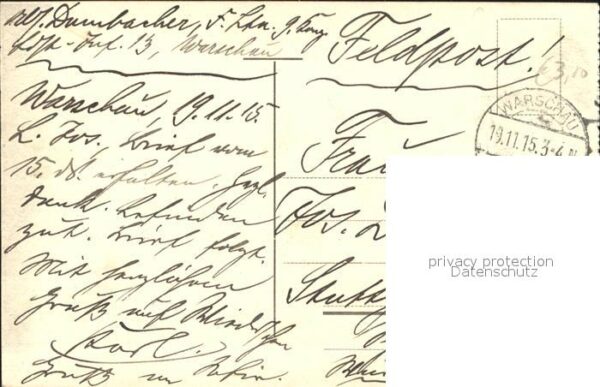 Dambacher, F. Ltn. 9. Komp.
Inf. 13, Warschau
Feldpost!
63,10
WARSCHAU
19.11.15. 3-4 N
Warschau, 19.11.15.
L. Jos., Brief vom
15. ds. erhalten. Hzl.
Dank. Befinden
gut. Brief folgt.
Mit herzlichem
Gruß auf Wiedersehen
Karl.
Gruß an
Frau
Jos. D
Stuttg
privacy protection
Datenschutz